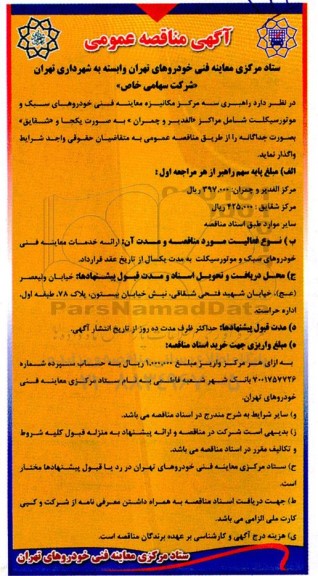 آگهی مناقصه عمومی
ستاد مرکزی معاینه فنی خودروهای تهران وابسته به شهرداری تهران
«شرکت سهامی خاص»
در نظر دارد راهبری سه مرکز مکانیزه معاینه فنی خودروهای سبک و
موتورسیکلت شامل مراکز «الغدیر و چمران » به صورت یکجا و «شقایق»
بصورت جداگانه را از طریق مناقصه عمومی به متقاضیان حقوقی واجد شرایط
واگذار نماید.
الف) مبلغ پایه سهم راهبر از هر مراجعه اول :
مرکز الغدیر و چمران: ۳۹۷.۰۰۰ ریال
مرکز شقایق : ۴۲۵.۰۰۰ ریال
سایر موارد طبق اسناد مناقصه
ب ) نوع فعالیت مورد مناقصه و مدت آن: ارائه خدمات معاینه فنی
خودروهای سبک و موتورسیکلت به مدت یکسال از تاریخ عقد قرارداد.
ج) محل دریافت و تحویل اسناد و مدت قبول پیشنهادها: خیابان ولیعصر
(عج)، خیابان شهید فتحی شقاقی، نبش خیابان بیستون، پلاک ۷۸، طبقه اول،
اداره حراست.
د) مدت قبول پیشنهادها: حداکثر ظرف مدت ده روز از تاریخ انتشار آگهی.
ه) مبلغ واریزی جهت خرید اسناد مناقصه:
به ازای هر مرکز واریز مبلغ ۱.۰۰۰.۰۰۰ ریال به حساب سپرده شماره
۷۰۰۱۷۵۷۷۲۶ بانک شهر شعبه فاطمی به نام ستاد مرکزی معاینه فنی
خودروهای تهران.
و) سایر شرایط به شرح مندرج در اسناد مناقصه می باشد.
ز) بدیهی است شرکت در مناقصه و ارائه پیشنهاد به منزله قبول کلیه شروط و
و تکالیف مقرر در اسناد مناقصه می باشد.
ح) ستاد مرکزی معاینه فنی خودروهای تهران در رد یا قبول پیشنهادها مختار
است.
ط) جهت دریافت اسناد مناقصه به همراه داشتن معرفی نامه از شرکت و کپی
کارت ملی الزامی می باشد.
ی) هزینه درج آگهی و کارشناسی بر عهده برندگان مناقصه است.
ستاد مرکزی معاینه فنی خودروهای تهران
ParsNamadData